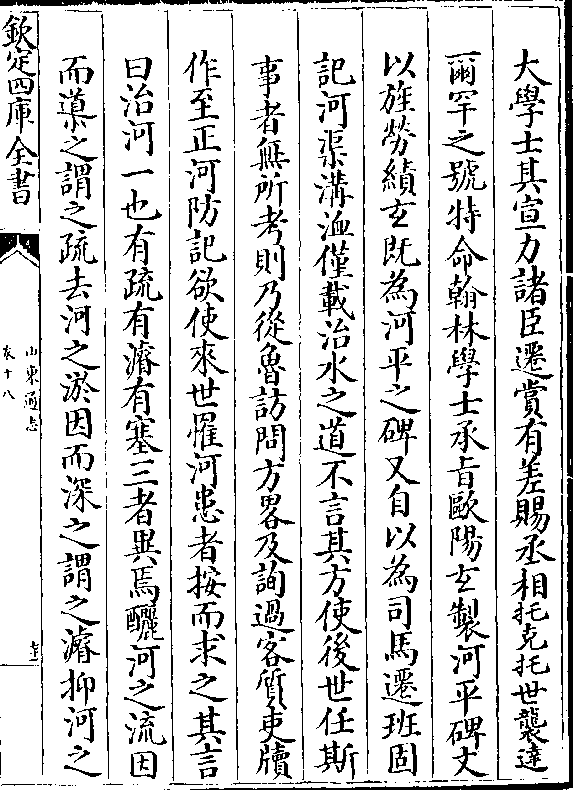 大學士其宣力諸臣遷賞有差賜丞相托克托世襲達
爾罕之號特命翰林學士承旨歐陽玄製河平碑文
以旌勞績玄既為河平之碑又自以為司馬遷班固
記河渠溝洫僅載治水之道不言其方使後世任斯
事者無所考則乃從魯訪問方畧及詢過客質吏牘
作至正河防記欲使來世罹河患者按而求之其言
曰治河一也有疏有濬有塞三者異焉釃河之流因
而導之謂之疏去河之淤因而深之謂之濬抑河之
欽定四庫全書
山東通志
卷十八